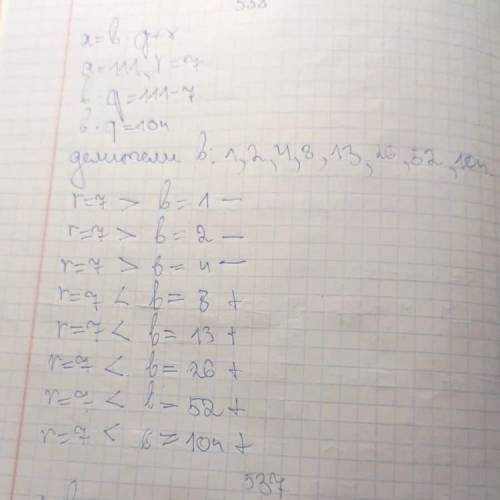 538
a = b · q + r
a = 111, r = 7
b · q = 111 - 7
b · q = 104
делители b: 1, 2, 4, 8, 13, 26, 52, 104
r = 7 > b = 1 —
r = 7 > b = 2 —
r = 7 > b = 4 —
r = 7 < b = 8 +
r = 7 < b = 13 +
r = 7 < b = 26 +
r = 7 < b = 52 +
r = 7 < b = 104 +
537